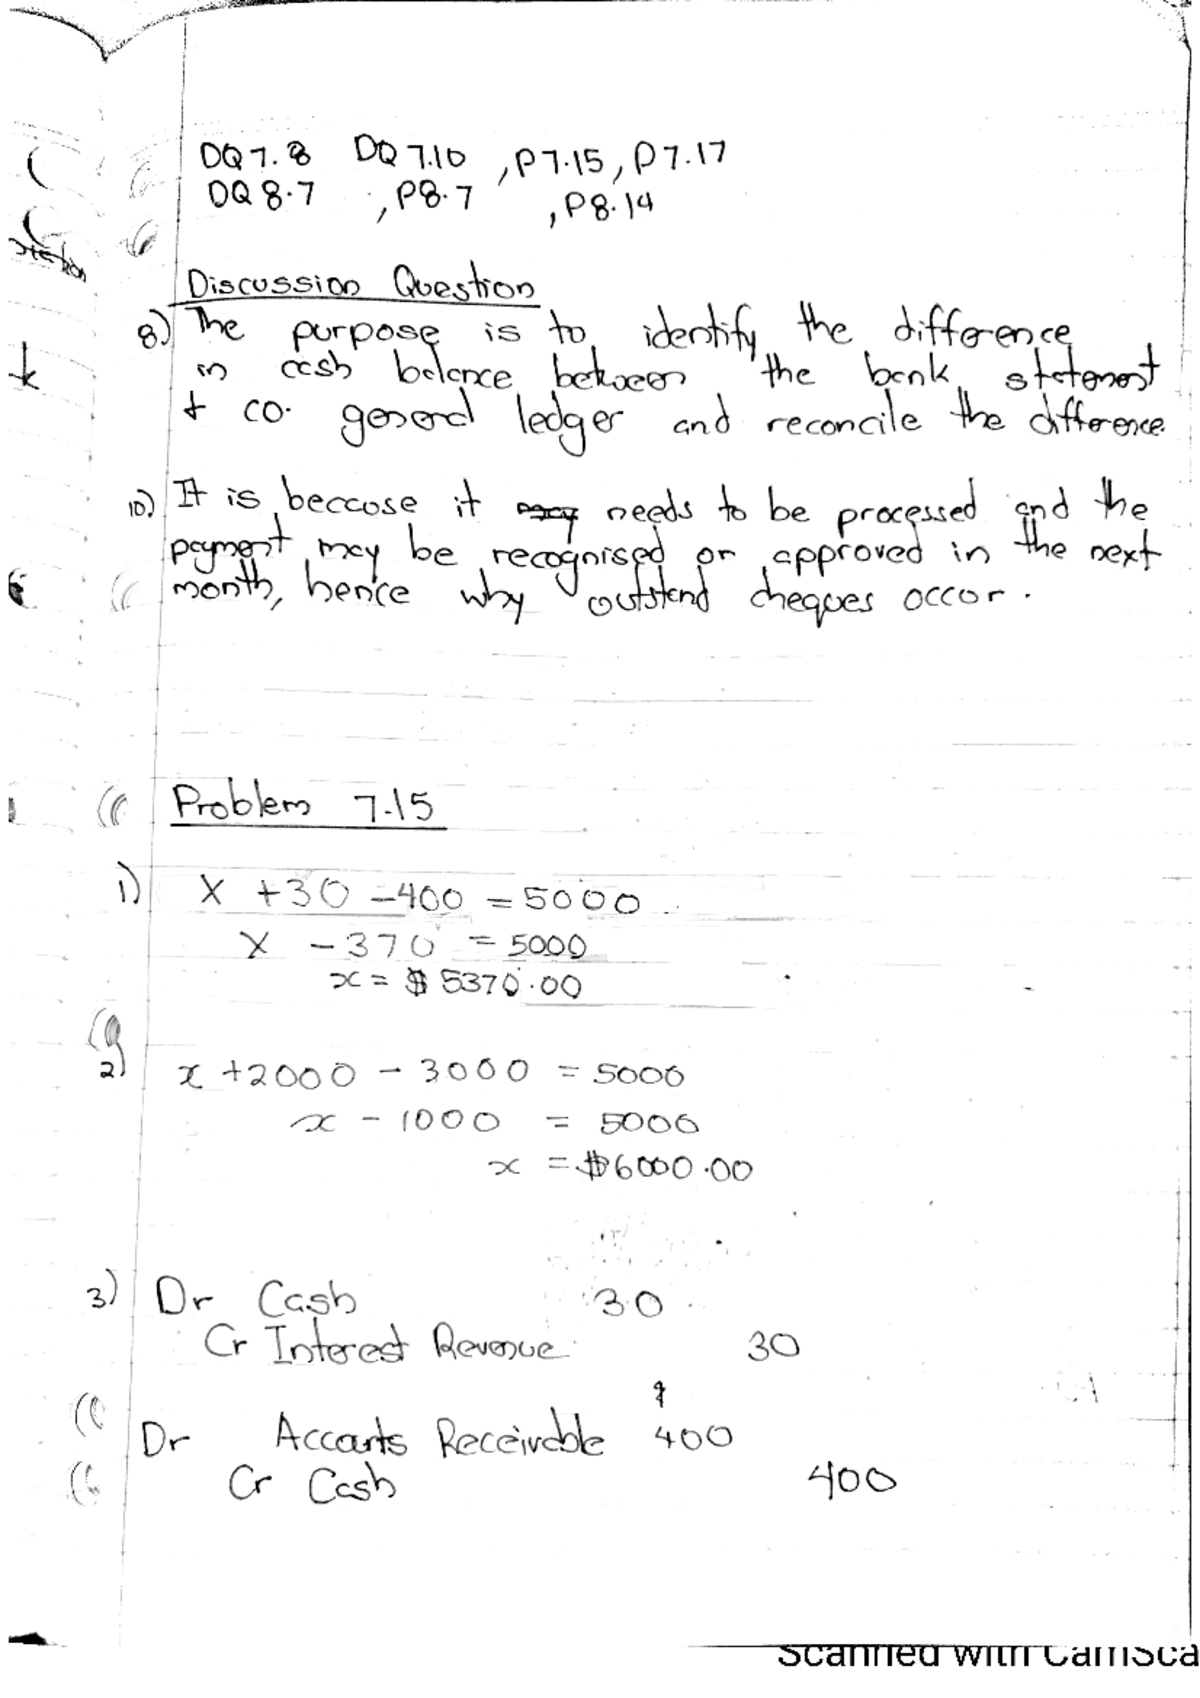 DQ 7.8 DQ 7.10 , P7.15, P7.17
DQ 8.7 , P8.7 , P8.14
Discussion Question
8) The purpose is to identify the difference
in cash balance between the bank statement
+ co. general ledger and reconcile the difference
10) It is because it needs to be processed and the
payment may be recognised or approved in the next
month, hence why outstand cheques occur.
Problem 7.15
1) X + 30 - 400 = 5000
X - 370 = 5000
x = $ 5370.00
2) x + 2000 - 3000 = 5000
x - 1000 = 5000
x = $6000.00
3) Dr Cash 30
Cr Interest Revenue 30
Dr Accounts Receivable 400
Cr Cash 400
Scanned with CamSca